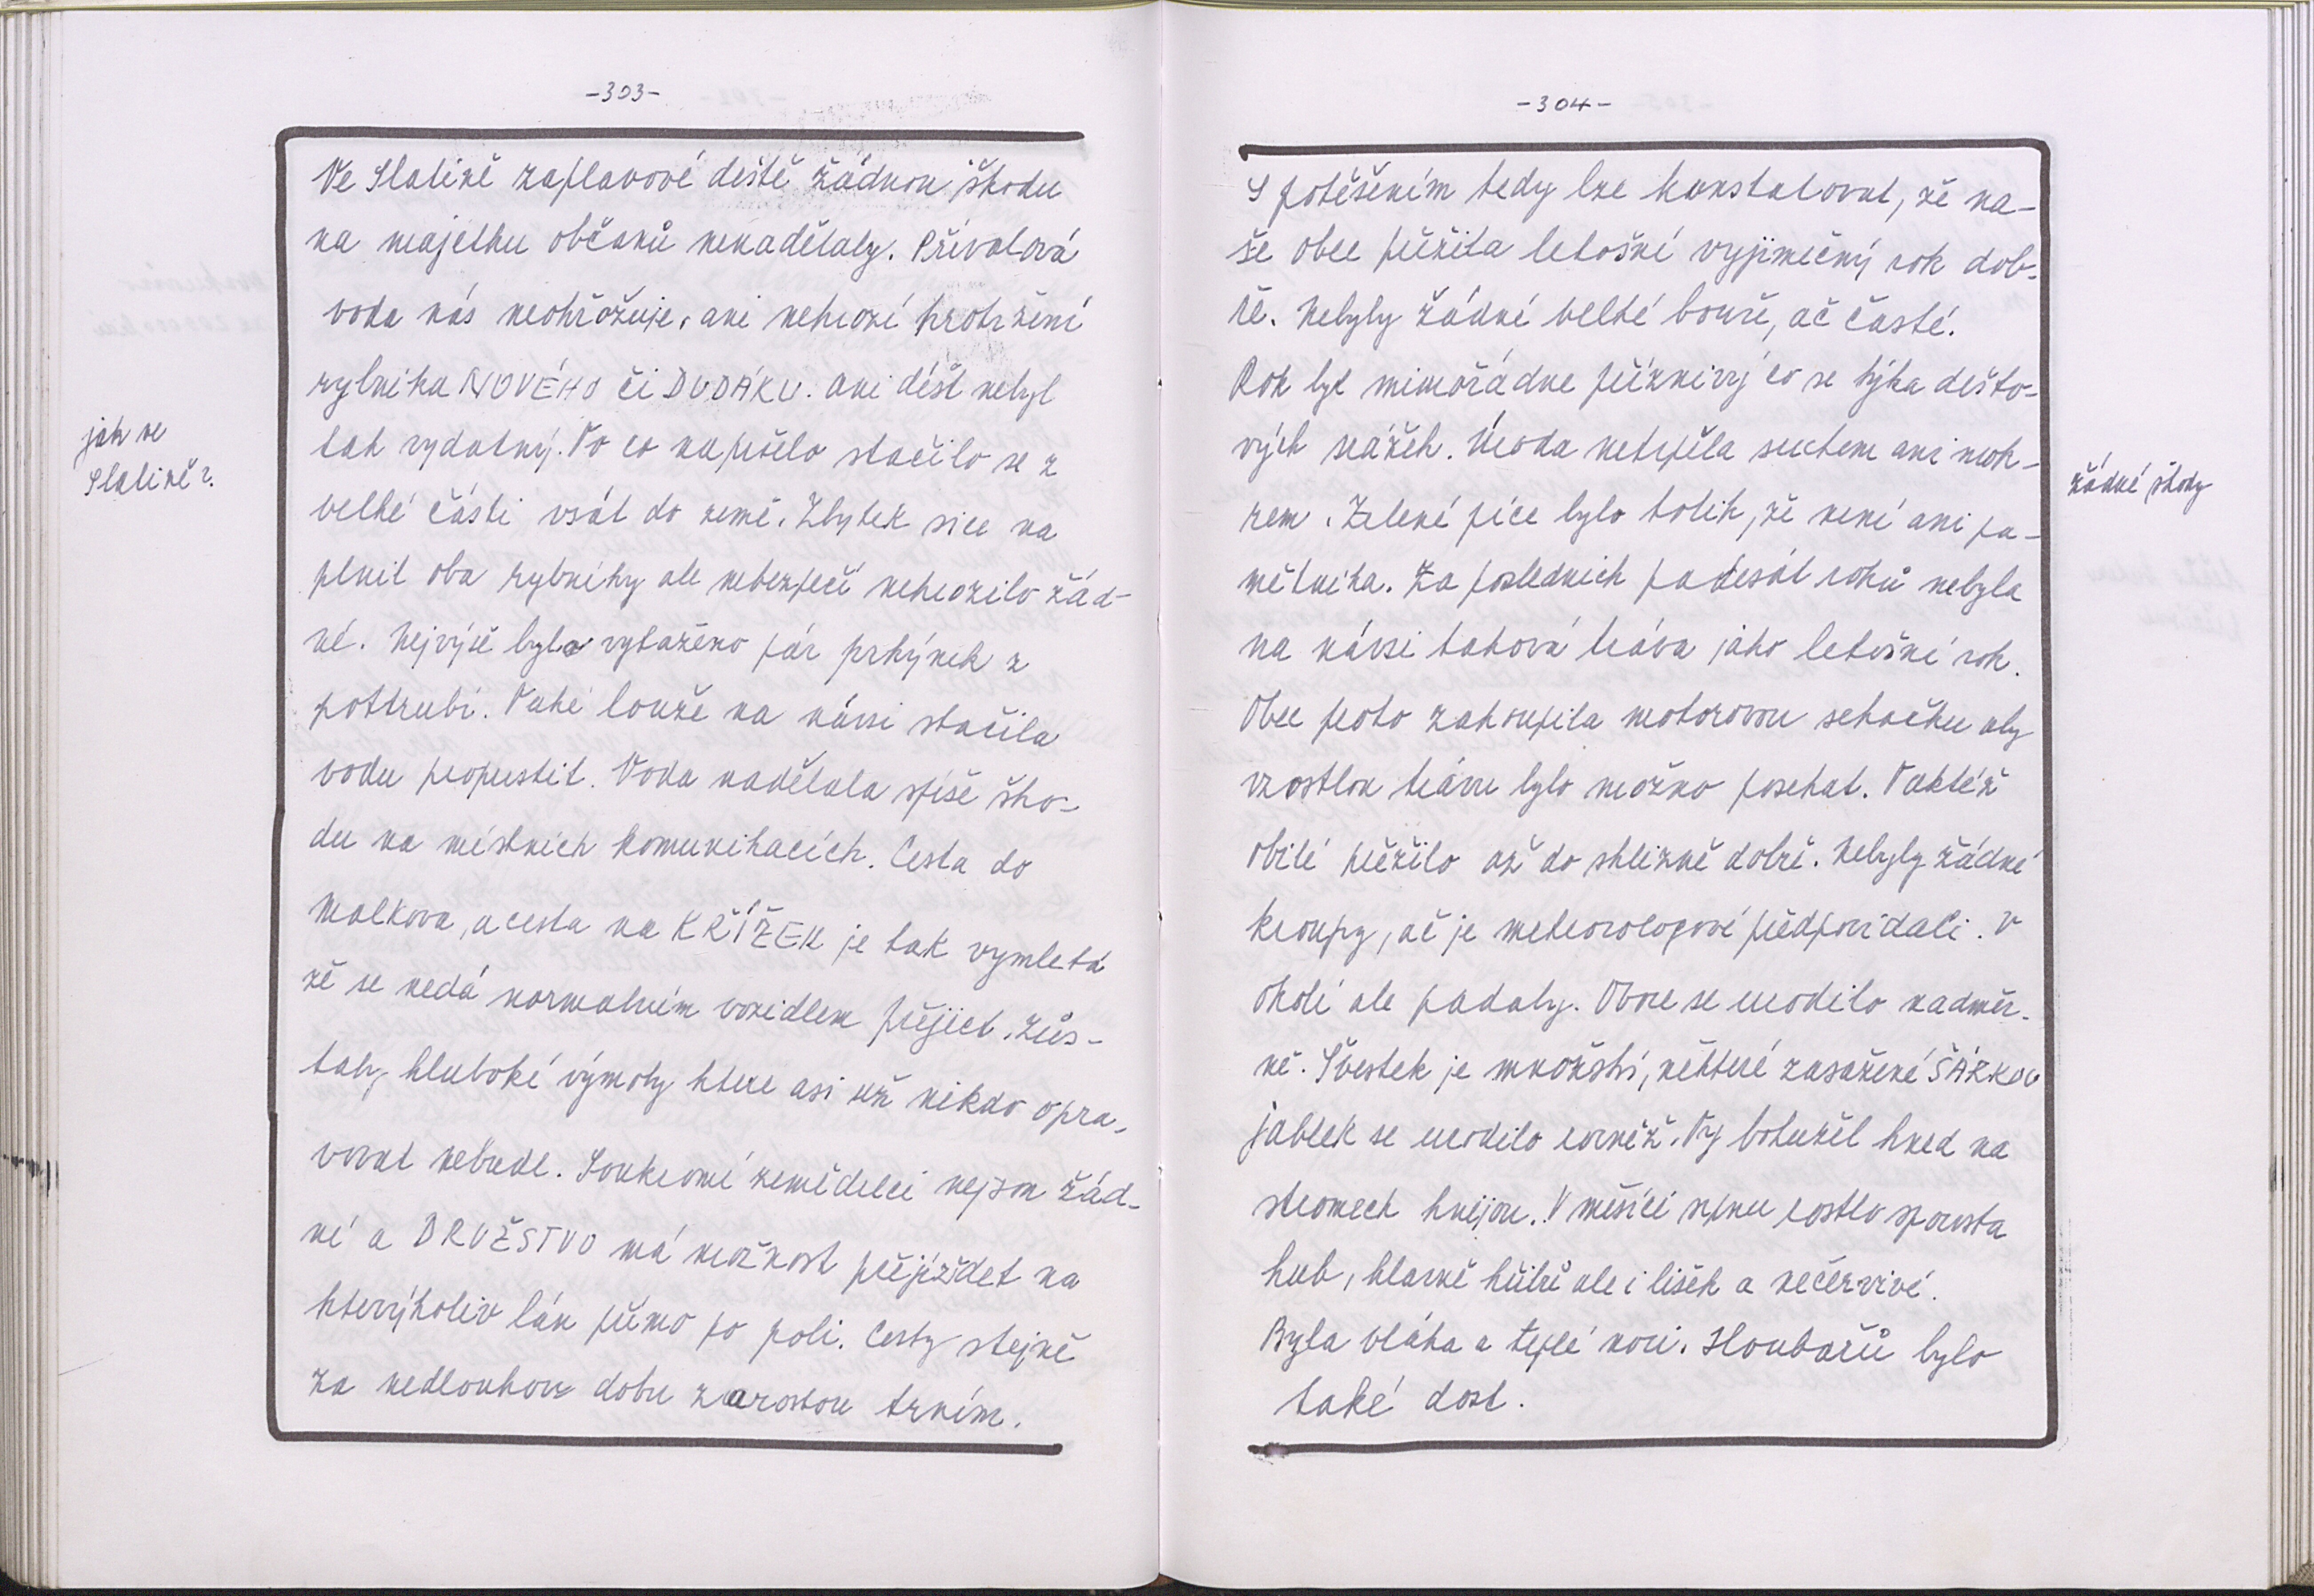 -303-
Ve Slatině zaplavové deště žádnou škodu
na majetku občanů nenadělaly. Přívalová
voda nás neohrožuje, ani nehrozí protržení
rybníka NOVÉHO či DUDÁKU. Ani déšť nebyl
tak vydatný. To co napršelo stačilo se z
velké části vsát do země. Zbytek sice na
plnil oba rybníky ale nebezpečí nehrozilo žád-
né. Nejvýše bylo vytaženo pár prkýnek z
potrubí. Také louže na návsi stačila
vodu propustit. Voda nadělala spíše ško-
du na místních komunikacích. Cesta do
Malkova, a cesta na KŘÍŽEK je tak vymletá
že se nedá normalním vozidlem přejíet. Zůs-
taly hluboké výmoly ktere asi už nikdo opra-
vovat nebude. Soukromí zemědelci nejsou žád-
ní a DRUŽSTVO má možnost přejíždet na
kterýkoliv lán přímo po poli. Cesty stejně
za nedlouhou dobu zarostou trním.
jak ve
Slatině?
-304-
S potěšením tedy lze konstatovat, že na-
še obec přežila letošní vyjimečný rok dob-
ře. Nebyly žádné velké bouře, ač časté.
Rok byl mimořádne příznivý co se týka dešťo-
vých srážek. Úroda netrpěla suchem ani mok-
rem. Zelené píce bylo tolik, že není ani pa-
mětníka. Za poslednich padesát roků nebyla
na návsi taková tráva jako letošní rok.
Obec proto zakoupila motorovou sekačku aby
vzrostlou trávu bylo možno posekat. Taktéž
obilí přežilo až do sklizně dobře. Nebyly žádné
kroupy, ač je meteorologové předpovídali. V
okolí ale padaly. Ovoce se urodilo nadměr-
ně. Švestek je množství, některé zasažené ŠÁRKOU
jablek se urodilo rovněž. Ty bohužel hned na
stromech hnijou. V měsíci srpnu rostlo spousta
hub, hlavně hřibů ale i lišek a nečervivé.
Byla vláha a teplé noci. Houbařů bylo
také dost.
žádné škody